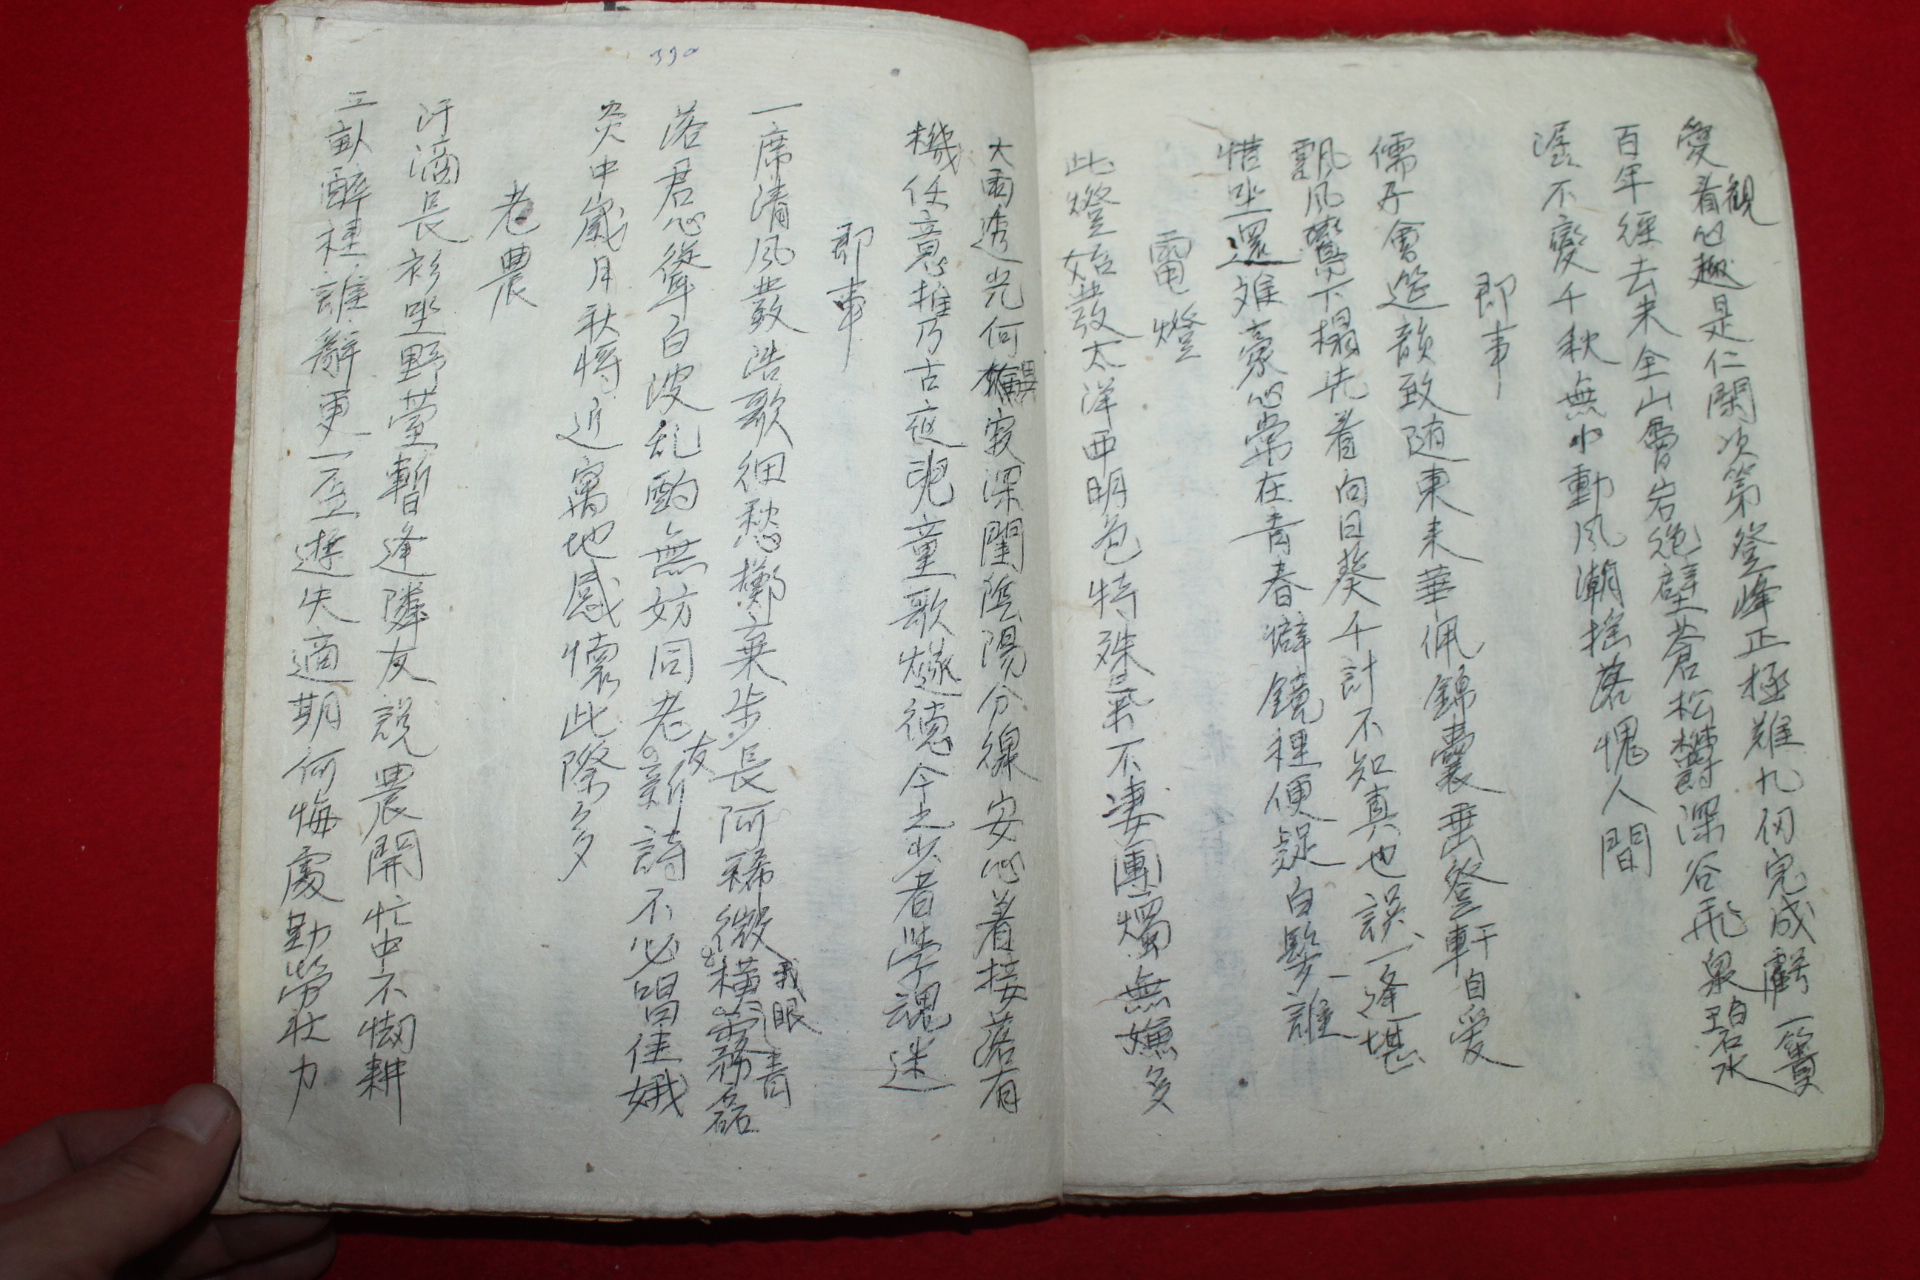 愛看心趣是仁關次第登峰正極難九仞完成虧一簣
觀
百年經去来全山層岩絶壁蒼松欝深谷飛泉碧水
潺不變千秋無小動風潮搖落愧人間
即事
儒子會筵韻致随東来華佩錦囊垂登軒自愛
飄風欝下榻先看向日葵千計不知真也誤一逢堪
惜坐還难豪心常在青春僻鏡裡便疑白髮誰
電燈
此燈始發太洋西明色特殊氣不凄團燭無嫌多
大雨透光何寂深閨陰陽分線安心着接落有
機任意推乃古夜児童歌燧德今之学者学魂迷
即事
一席清風發浩歌細愁擲棄步長阿稀微橫霧磊
我眼青
落君心聳白波乱酌無妨同老新詩不必唱佳娥
友
炎中歲月秋将近寓地感懷此際多
老農
汗滴長衫坐野萱暫逢隣友説農閒忙中不惻耕
三畝醉種誰辭更一壺遊失適期何悔處勤勞壮力
330